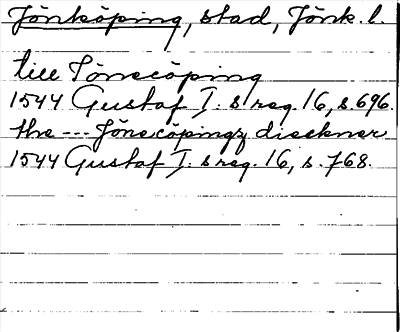 Jönköping, stad, Jönk. l.
till Jönecöping
1544 Gustaf I:s reg. 16, s. 696.
the --- Jönecöpingz disckner
1544 Gustaf I:s reg. 16, s. 768.